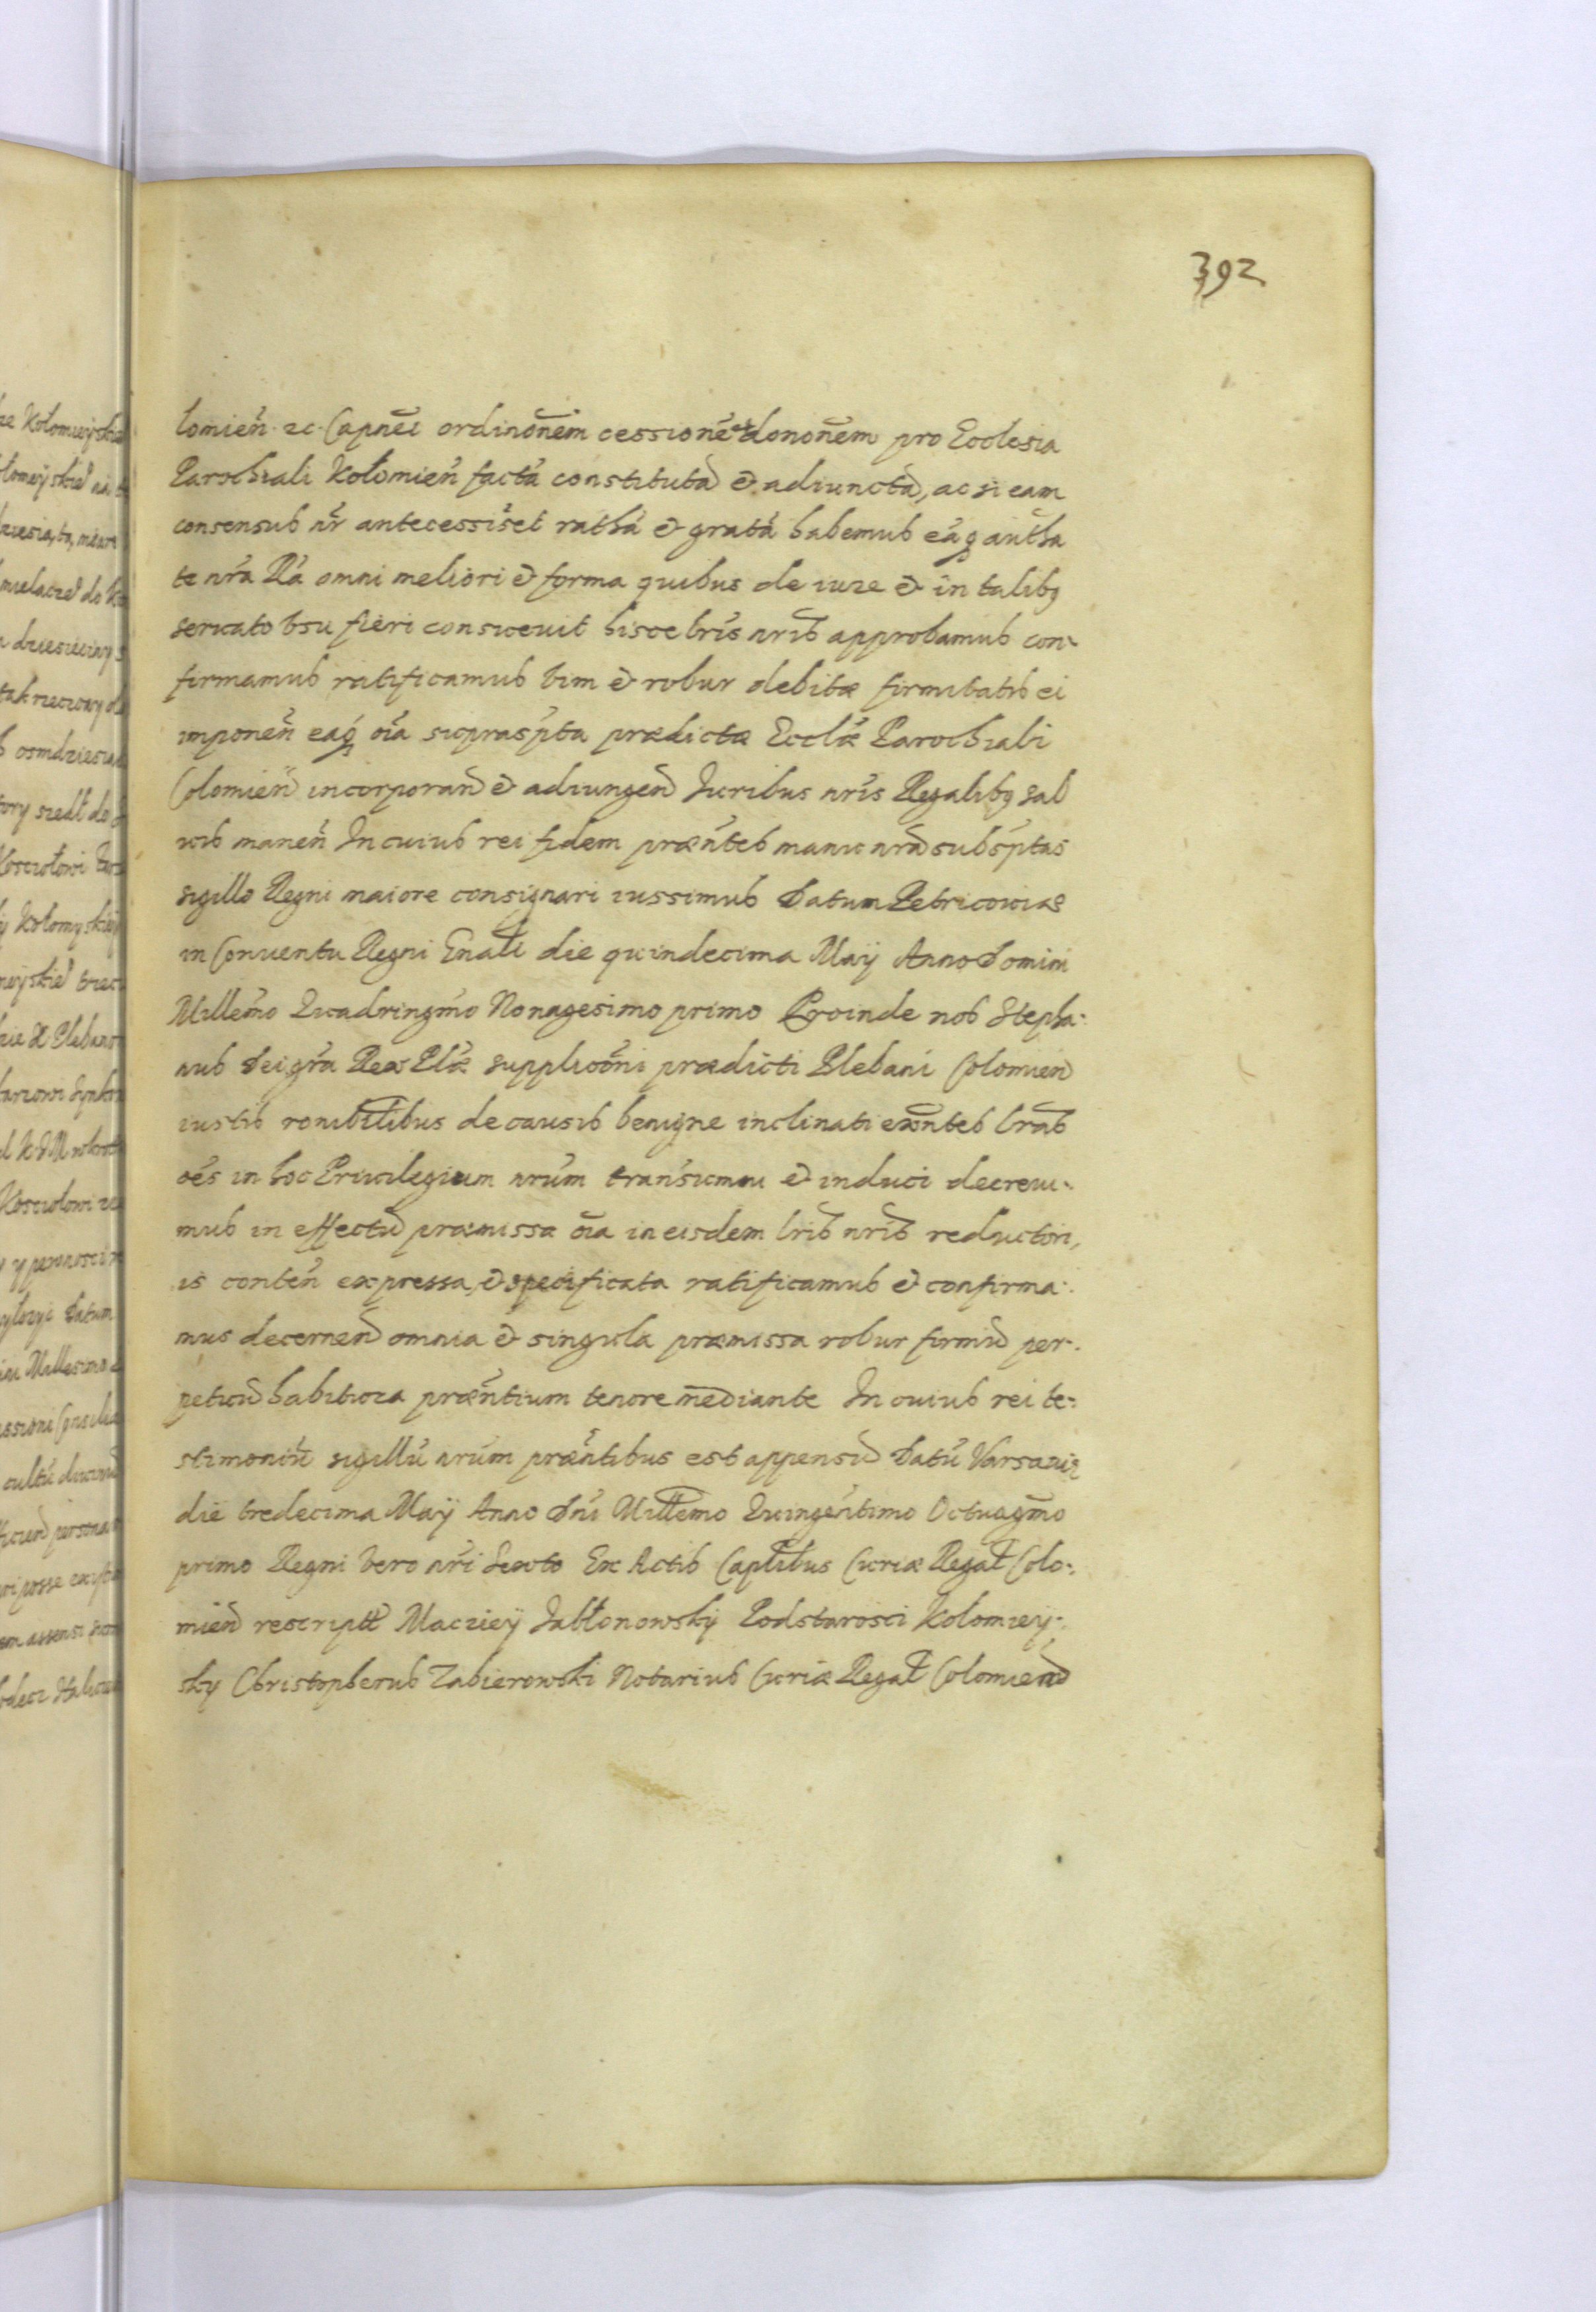 392
lomien̄ zc. Capnēi ordinōnem cessionē et donōnem pro Ecclesia
Parochiali Kołomien̄ factā constitutā & adiunctā, ac si eam
consensus nr̄ antecessisset rathā & gratā habemus eāq3 auth̄a
te nr̄a Rā omni meliori & forma quibus de iure & in talibq3
seruato vsu fieri consueuit hisce lr̄is nr̄is approbamus con-
firmamus ratificamus vim & robur debitæ firmitatis ei
imponen̄ eaq3 oīa suprasp̄ta prædictæ Eccl̄æ Parochiali
Colomien̄ incorporan̄ & adiungen̄ Iuribus nr̄is Regalibq3 sal
uis manen̄ In cuius rei fidem præn̄tes manu nr̄a subsp̄tas
sigillo Regni maiore consignari iussimus Datum Petricouiæ
in Conuentu Regni Gnali die quindecima Maÿ Anno Domini
Millēmo Quadringm̄o Nonagesimo primo Proinde nos Stepha-
nus Dei gr̄a Rex Pl̄æ supplicōni prædicti Plebani Colomien̄
iustis ronibilibus de causis benigne inclinati exn̄tes lr̄as
oēs in hoc Priuilegium nr̄um transumi & induci decreui-
mus in effectū præmissa oīa in eisdem lr̄is nr̄is reductori,
is conten̄ expressa, & specificata ratificamus & confirma-
mus decernen̄ omnia & singula præmissa robur firmū per-
petuū habitura præn̄tium tenore mediante In cuius rei te-
stimoniū sigillū nr̄um præn̄tibus est appensū Datū Varsauiæ
die tredecima Maÿ Anno Dn̄i Millēmo Quingentimo Octuagm̄o
primo Regni vero nr̄i Sexto Ex Actis Captibus Curiæ Regal̄ Colo-
mien̄ rescript̄ Macziey Jabłonowsky Podstarosci Kolomiey-
sky Christopherus Zabierowski Notarius Curiæ Regal̄ Colomien̄